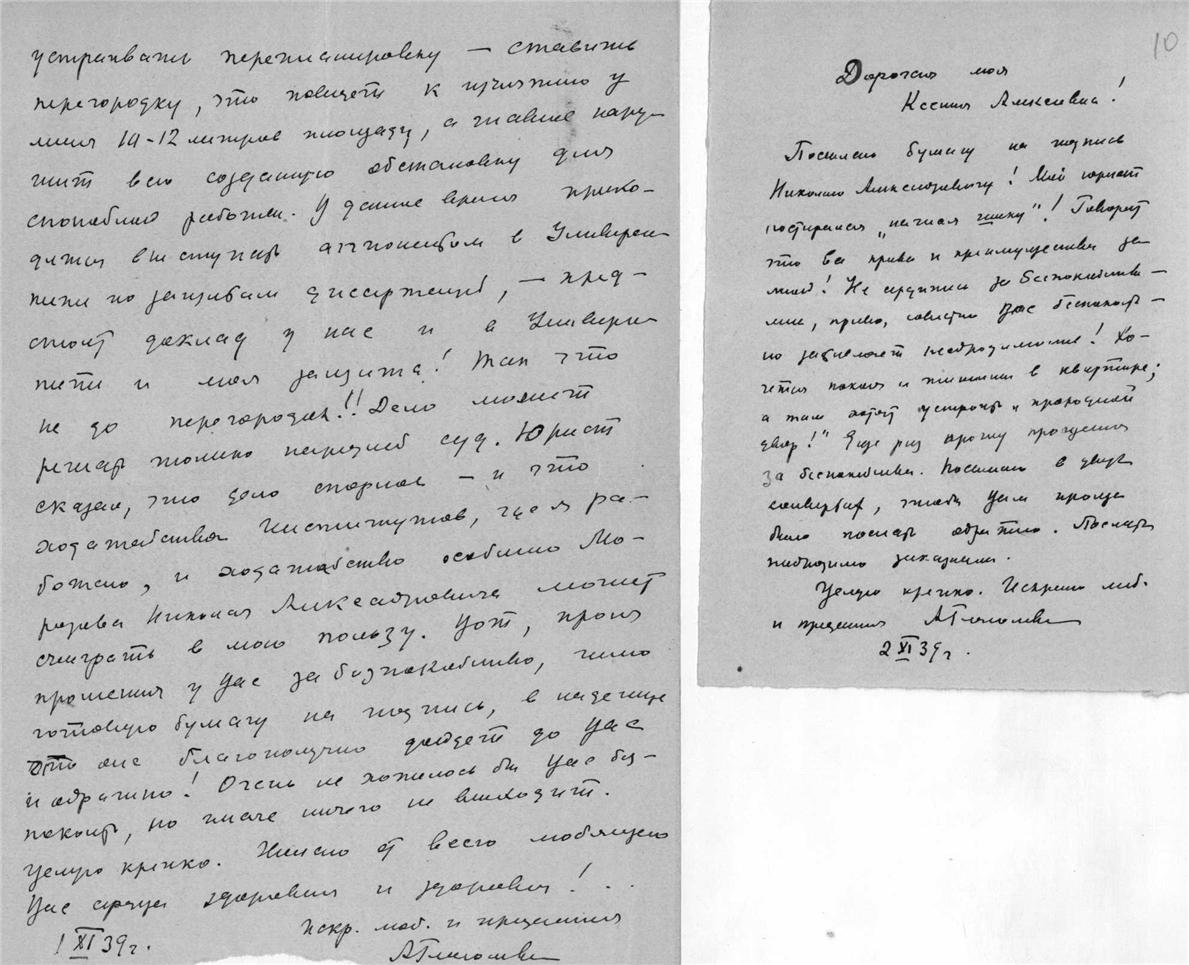 устраивать перепланировку — ставить
перегородку, это поведет к изъятию у
меня 10-12 метров площади, а главное нару-
шит всю созданную обстановку для
спокойной работы. У данное время прихо-
дится выступать оппонентом в Универси-
тете по защитам диссертаций, — пред-
стоит доклад у нас и в Универси-
тете и моя защита! Так что
не до перегородок!! Дело может
решать только народный суд. Юрист
сказал, что дело спорное — и что
ходатайства Институтов, где я ра-
ботаю, и ходатайство особенно Мо-
розова Николая Александровича может
сыграть в мою пользу. Вот, прося
прощения у Вас за беспокойство, шлю
готовую бумагу на подпись, в надежде
что она благополучно дойдет до Вас
и обратно! Очень не хотелось бы Вас бес-
покоить, но иначе ничего не выходит.
Целую крепко. Желаю от всего любящего
Вас сердца здоровья и здоровья!..
Искр. люб. и преданная
1 XI 39 г.
АГлаголева
10
Дорогая моя
Ксения Алексеевна!
Посылаю бумагу на подпись
Николаю Александровичу! Мой юрист
постарался
Говорит
что все права и преимущества за
мной! Не сердитесь за беспокойство —
мне, право, совестно Вас беспокоить —
но заставляет необходимость! Хо-
чется покоя и тишины в квартире;
а там хотят устроить „проходной
двор!" Еще раз прошу прощения
за беспокойство. Посылаю в двух
конвертах, чтобы Вам проще
было послать обратно. Послать
необходимо заказным.
Целую крепко. Искренно люб.
и преданная АГлаголева
2 XI 39 г.